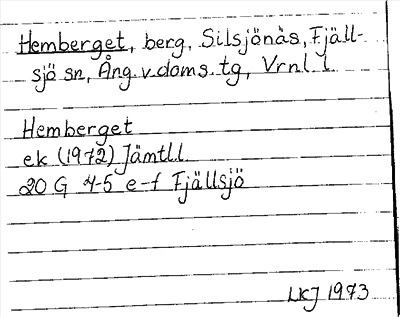 Hemberget, berg, Silsjönäs, Fjäll-
sjö sn, Ång. v. doms. tg, Vrnl. l.
Hemberget
ek (1972) Jämtl l
20 G 4-5 e-f Fjällsjö
LKJ 1973